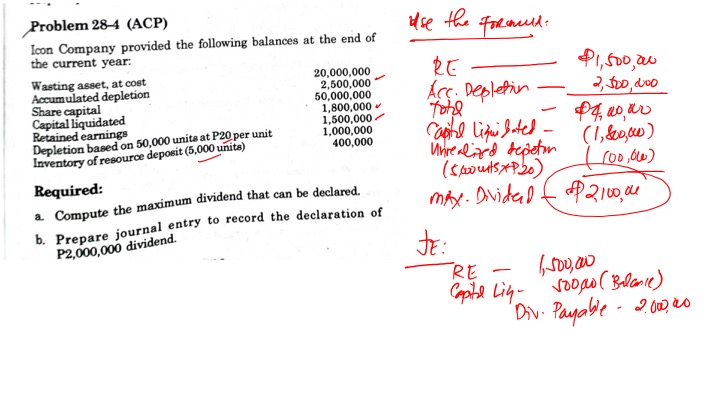 Problem 28-4 (ACP)
Icon Company provided the following balances at the end of
the current year:
Wasting asset, at cost 20,000,000
Accumulated depletion 2,500,000
Share capital 50,000,000
Capital liquidated 1,800,000
Retained earnings 1,500,000
Depletion based on 50,000 units at P20 per unit 1,000,000
Inventory of resource deposit (5,000 units) 400,000
Required:
a. Compute the maximum dividend that can be declared.
b. Prepare journal entry to record the declaration of
P2,000,000 dividend.
Use the Formula:
RE — ₱1,500,000
Acc. Depletion — 2,500,000
Total — ₱4,000,000
Capital Liquidated — (1,800,000)
Unrealized depletion
(5,000 units x P20) (100,000)
MAX. Dividend — ₱2100,000
JE:
RE — 1,500,000
Capital Liq - 500,000 (Balance)
Div. Payable - 2,000,000